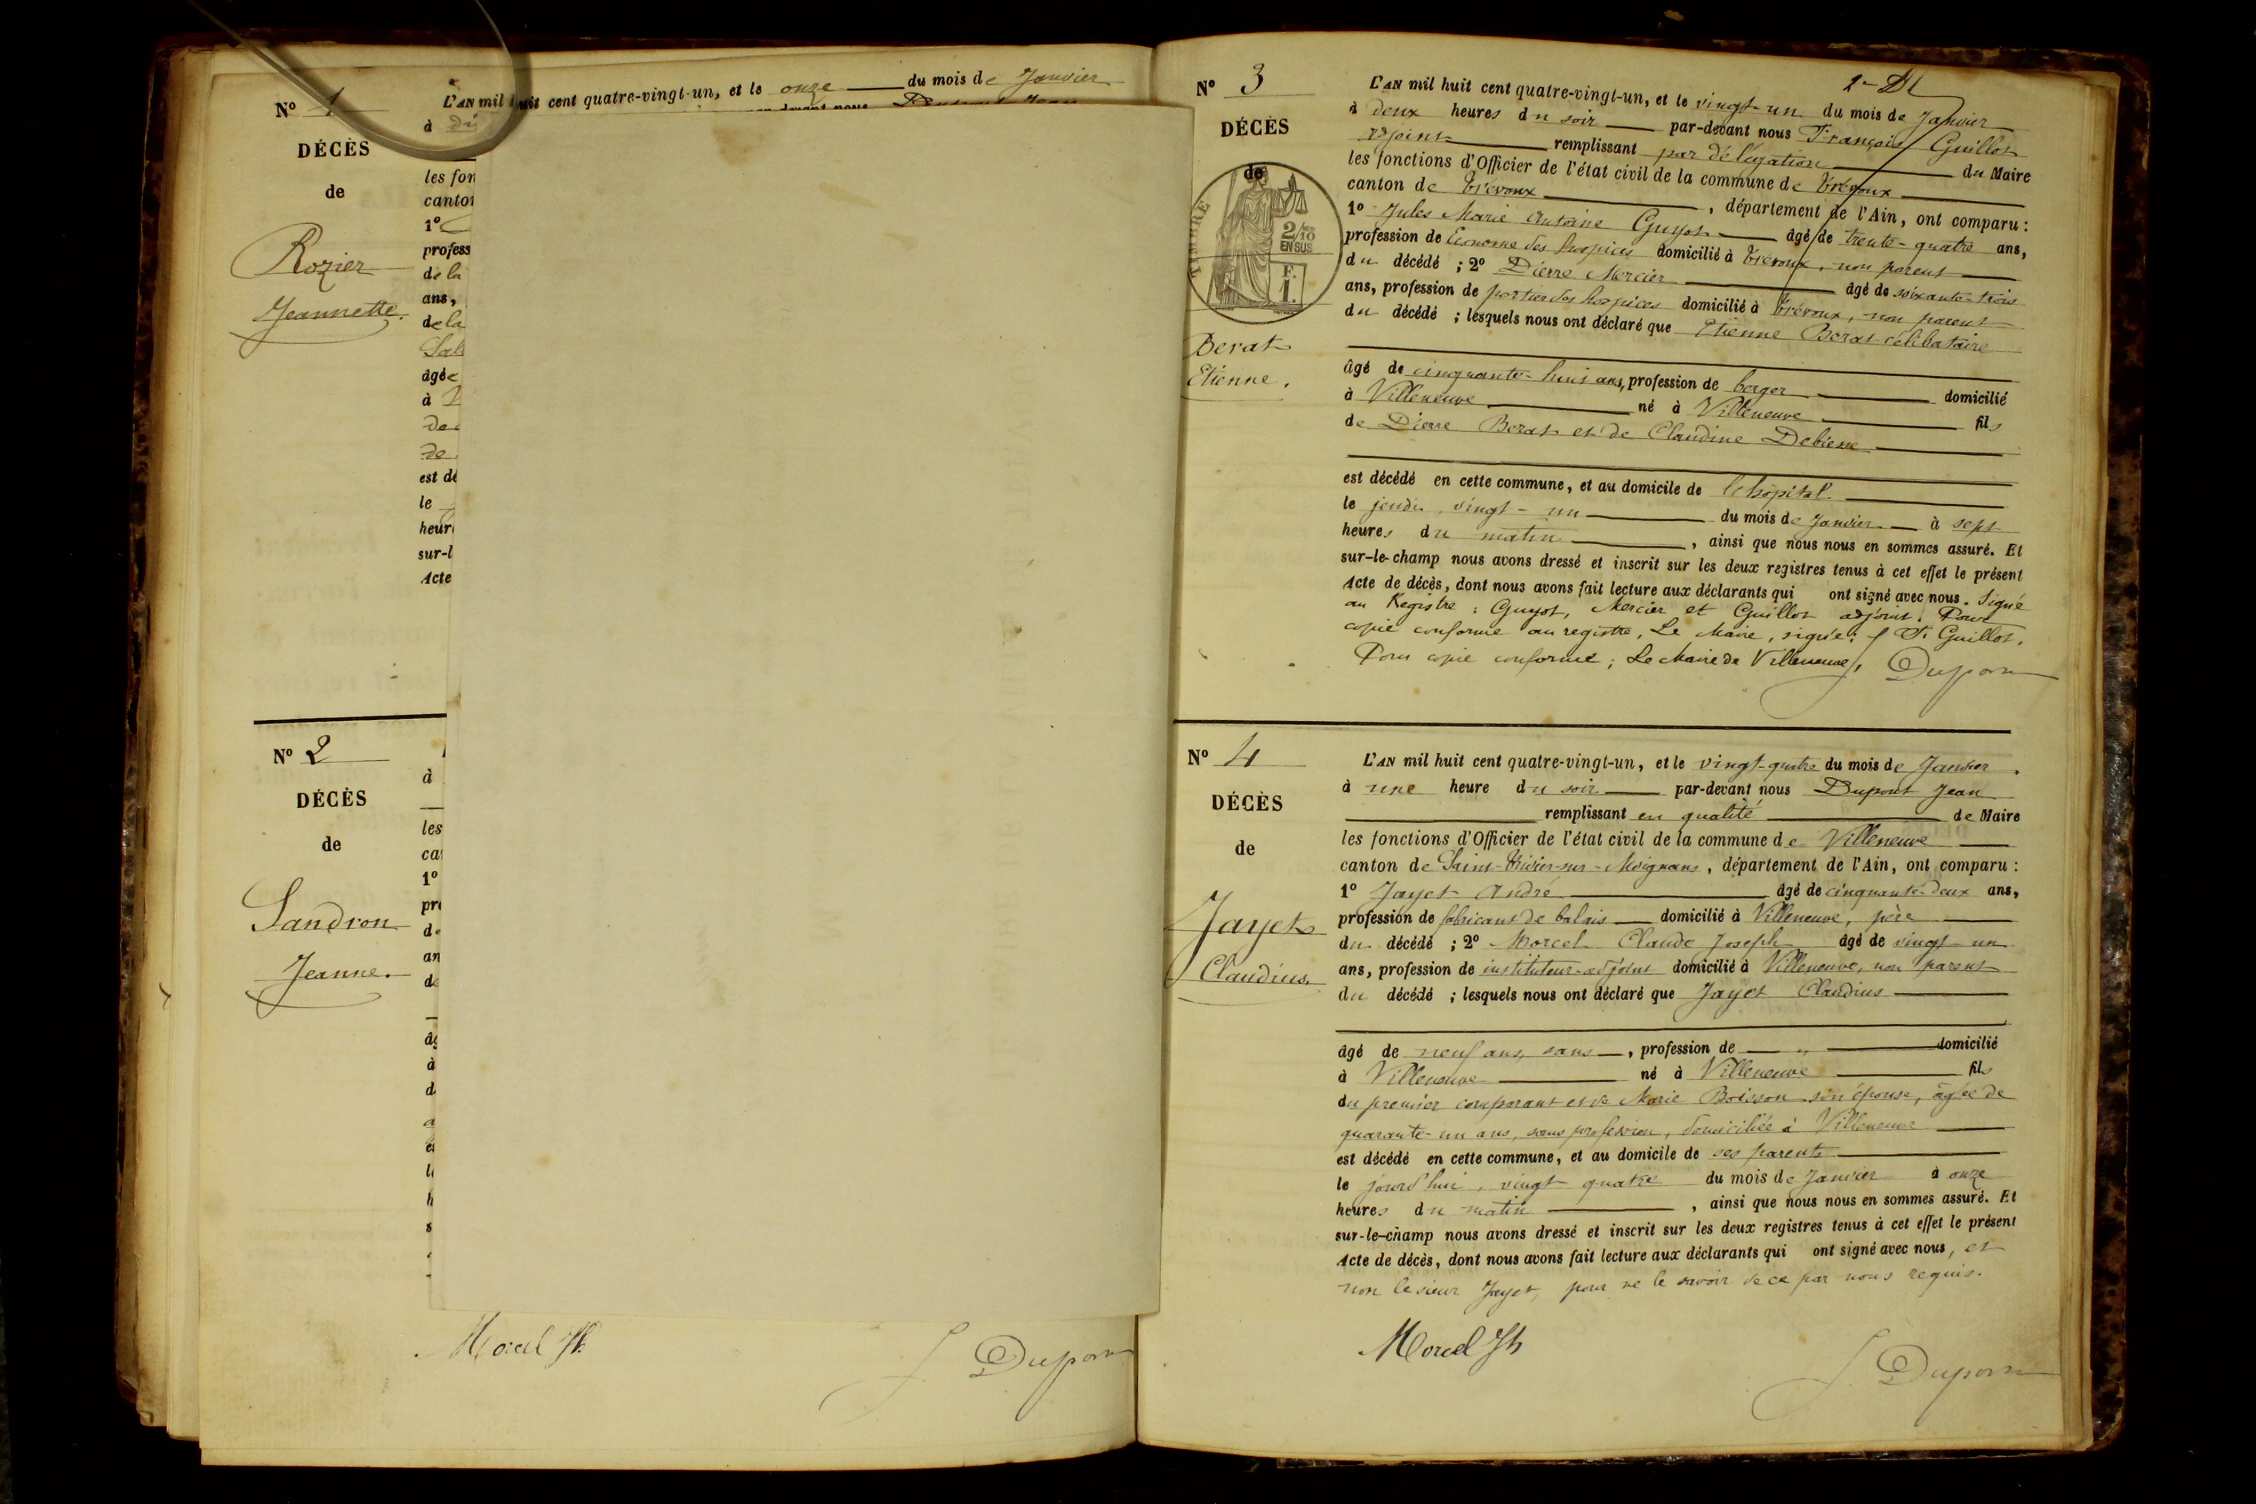 Nº 1
DÉCÈS
de
Rozier
Jeannette.
L'AN mil huit cent quatre-vingt-un, et le onze du mois de Janvier
à
les fon
canton
1º
profess
de la
ans,
de la
âgé
à
de
de
est dé
le
heur
sur-l
Acte
Nº 2
DÉCÈS
de
Sandron
Jeanne.
à
les
ca
1º
pro
d
an
de
âg
à
d
Morel Jh
J Dupont
Nº 3
DÉCÈS
de
TIMBRE
2/10
EN SUS
F.
1.
Berat
Etienne.
L'AN mil huit cent quatre-vingt-un, et le vingt-un du mois de Janvier
à deux heures du soir par-devant nous François Guillot
adjoint remplissant par délégation du Maire
les fonctions d'Officier de l'état civil de la commune de Trévoux
canton de Trévoux, département de l'Ain, ont comparu :
1º Jules Marie Antoine Guyot âgé de trente-quatre ans,
profession de Econome des hospices domicilié à Trévoux, non parent
du décédé ; 2º Pierre Mercier âgé de soixante-trois
ans, profession de portier des hospices domicilié à Trévoux, non parent
du décédé ; lesquels nous ont déclaré que Etienne Berat célibataire
âgé de cinquante-huit ans, profession de berger domicilié
à Villeneuve né à Villeneuve fils
de Pierre Berat et de Claudine Debiesse
est décédé en cette commune, et au domicile de l'hôpital.
le jeudi, vingt-un du mois de Janvier à sept
heures du matin, ainsi que nous nous en sommes assuré. Et
sur-le-champ nous avons dressé et inscrit sur les deux registres tenus à cet effet le présent
Acte de décès, dont nous avons fait lecture aux déclarants qui ont signé avec nous. Signé
au Registre : Guyot, Mercier et Guillot adjoint. Pour
copie conforme au registre, Le Maire, signé : F. Guillot.
Pour copie conforme ; Le Maire de Villeneuve, J Dupont
Nº 4
DÉCÈS
de
Jayet
Claudius.
L'AN mil huit cent quatre-vingt-un, et le vingt-quatre du mois de Janvier.
à une heure du soir par-devant nous Dupont Jean
remplissant en qualité de Maire
les fonctions d'Officier de l'état civil de la commune de Villeneuve
canton de Saint-Trivier-sur-Moignans, département de l'Ain, ont comparu :
1º Jayet André âgé de cinquante-deux ans,
profession de fabricant de balais domicilié à Villeneuve, père
du décédé ; 2º Morcel Claude Joseph âgé de vingt-un
ans, profession de instituteur-adjoint domicilié à Villeneuve, non parent
du décédé ; lesquels nous ont déclaré que Jayet Claudius
âgé de neuf ans, sans, profession de " domicilié
à Villeneuve né à Villeneuve fils
du premier comparant et de Marie Boisson son épouse, âgée de
quarante-un ans, sans profession, domiciliée à Villeneuve
est décédé en cette commune, et au domicile de ses parents
le jourd'hui, vingt quatre du mois de Janvier à onze
heures du matin, ainsi que nous nous en sommes assuré. Et
sur-le-champ nous avons dressé et inscrit sur les deux registres tenus à cet effet le présent
Acte de décès, dont nous avons fait lecture aux déclarants qui ont signé avec nous, et
non le sieur Jayet, pour ne le savoir de ce par nous requis.
Morel Jh
J Dupont